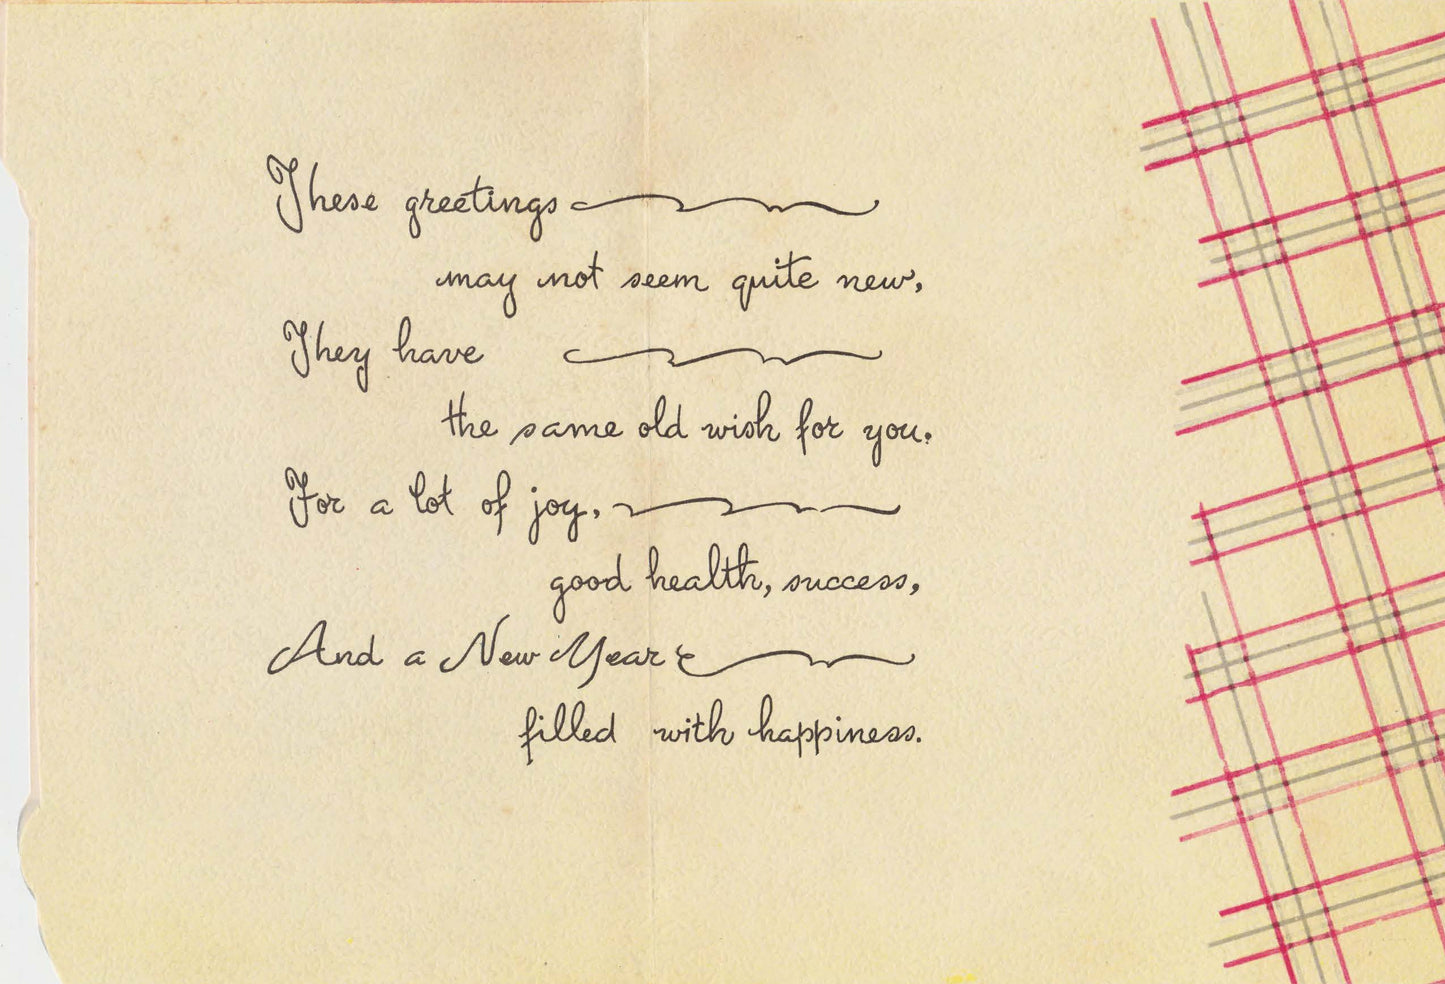 These greetings
may not seem quite new,
They have
the same old wish for you.
For a lot of joy,
good health, success,
And a New Year
filled with happiness.